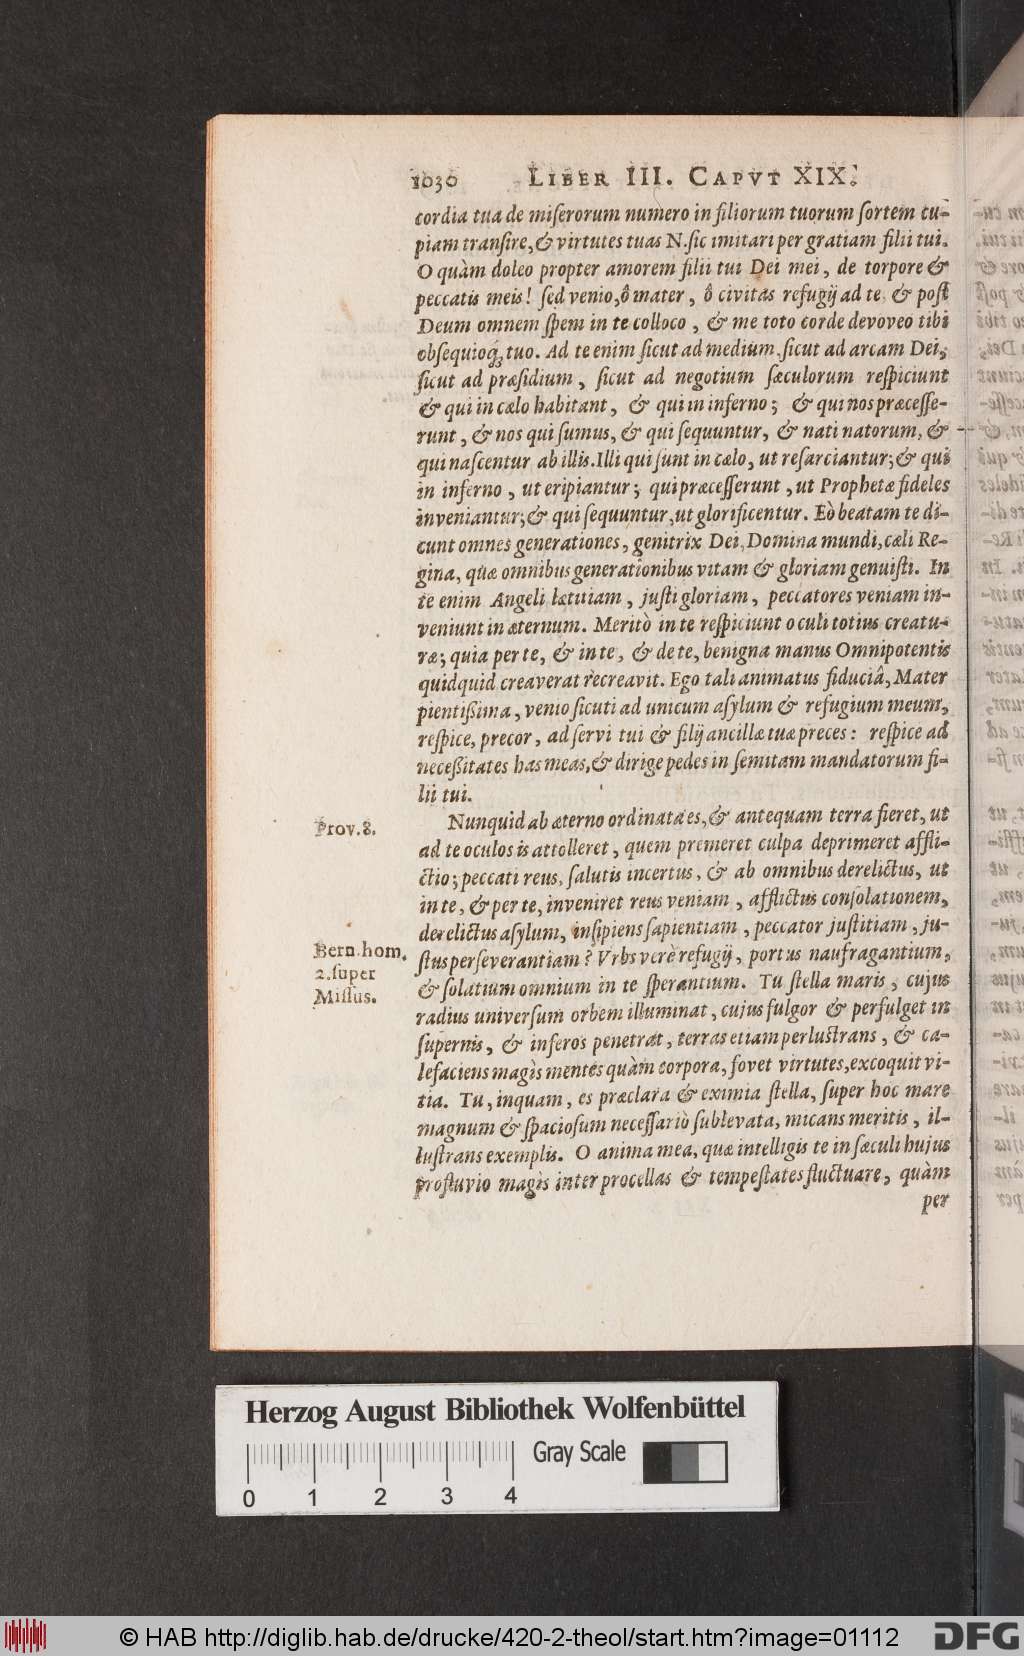 1030 LIBER III. CAPVT XIX.
cordia tua de miserorum numero in filiorum tuorum sortem cu-
piam transire, & virtutes tuas N. sic imitari per gratiam filii tui.
O quàm doleo propter amorem filii tui Dei mei, de torpore &
peccatis meis! sed venio, ô mater, ô civitas refugij ad te & post
Deum omnem spem in te colloco, & me toto corde devoveo tibi
obsequioq; tuo. Ad te enim sicut ad medium, sicut ad arcam Dei,
sicut ad præsidium, sicut ad negotium sæculorum respiciunt
& qui in cælo habitant, & qui in inferno; & qui nos præcesse-
runt, & nos qui sumus, & qui sequuntur, & nati natorum, &
qui nascentur ab illis. Illi qui sunt in cælo, ut resarciantur; & qui
in inferno, ut eripiantur; qui præcesserunt, ut Prophetæ fideles
inveniantur; & qui sequuntur, ut glorificentur. Eò beatam te di-
cunt omnes generationes, genitrix Dei, Domina mundi, cæli Re-
gina, quæ omnibus generationibus vitam & gloriam genuisti. In
te enim Angeli lætitiam, justi gloriam, peccatores veniam in-
veniunt in æternum. Meritò in te respiciunt oculi totius creatu-
ræ; quia per te, & in te, & de te, benigna manus Omnipotentis
quidquid creaverat recreavit. Ego tali animatus fiduciâ, Mater
pientißima, venio sicuti ad unicum asylum & refugium meum,
respice, precor, ad servi tui & filij ancillæ tuæ preces: respice ad
necessitates has meas, & dirige pedes in semitam mandatorum fi-
lii tui.
Prov. 8.
Nunquid ab æterno ordinata es, & antequam terra fieret, ut
ad te oculos is attolleret, quem premeret culpa deprimeret affli-
ctio; peccati reus, salutis incertus, & ab omnibus derelictus, ut
in te, & per te, inveniret reus veniam, afflictus consolationem,
derelictus asylum, insipiens sapientiam, peccator justitiam, ju-
Bern. hom.
2. super
Missus.
stus perseverantiam? Vrbs verè refugij, portus naufragantium,
& solatium omnium in te sperantium. Tu stella maris, cujus
radius universum orbem illuminat, cujus fulgor & perfulget in
supernis, & inferos penetrat, terras etiam perlustrans, & ca-
lefaciens magis mentes quàm corpora, fovet virtutes, excoquit vi-
tia. Tu, inquam, es præclara & eximia stella, super hoc mare
magnum & spaciosum necessariò sublevata, micans meritis, il-
lustrans exemplis. O anima mea, quæ intelligis te in sæculi hujus
profluvio magis inter procellas & tempestates fluctuare, quàm
per
Herzog August Bibliothek Wolfenbüttel
Gray Scale
0 1 2 3 4
© HAB http://diglib.hab.de/drucke/420-2-theol/start.htm?image=01112
DFG